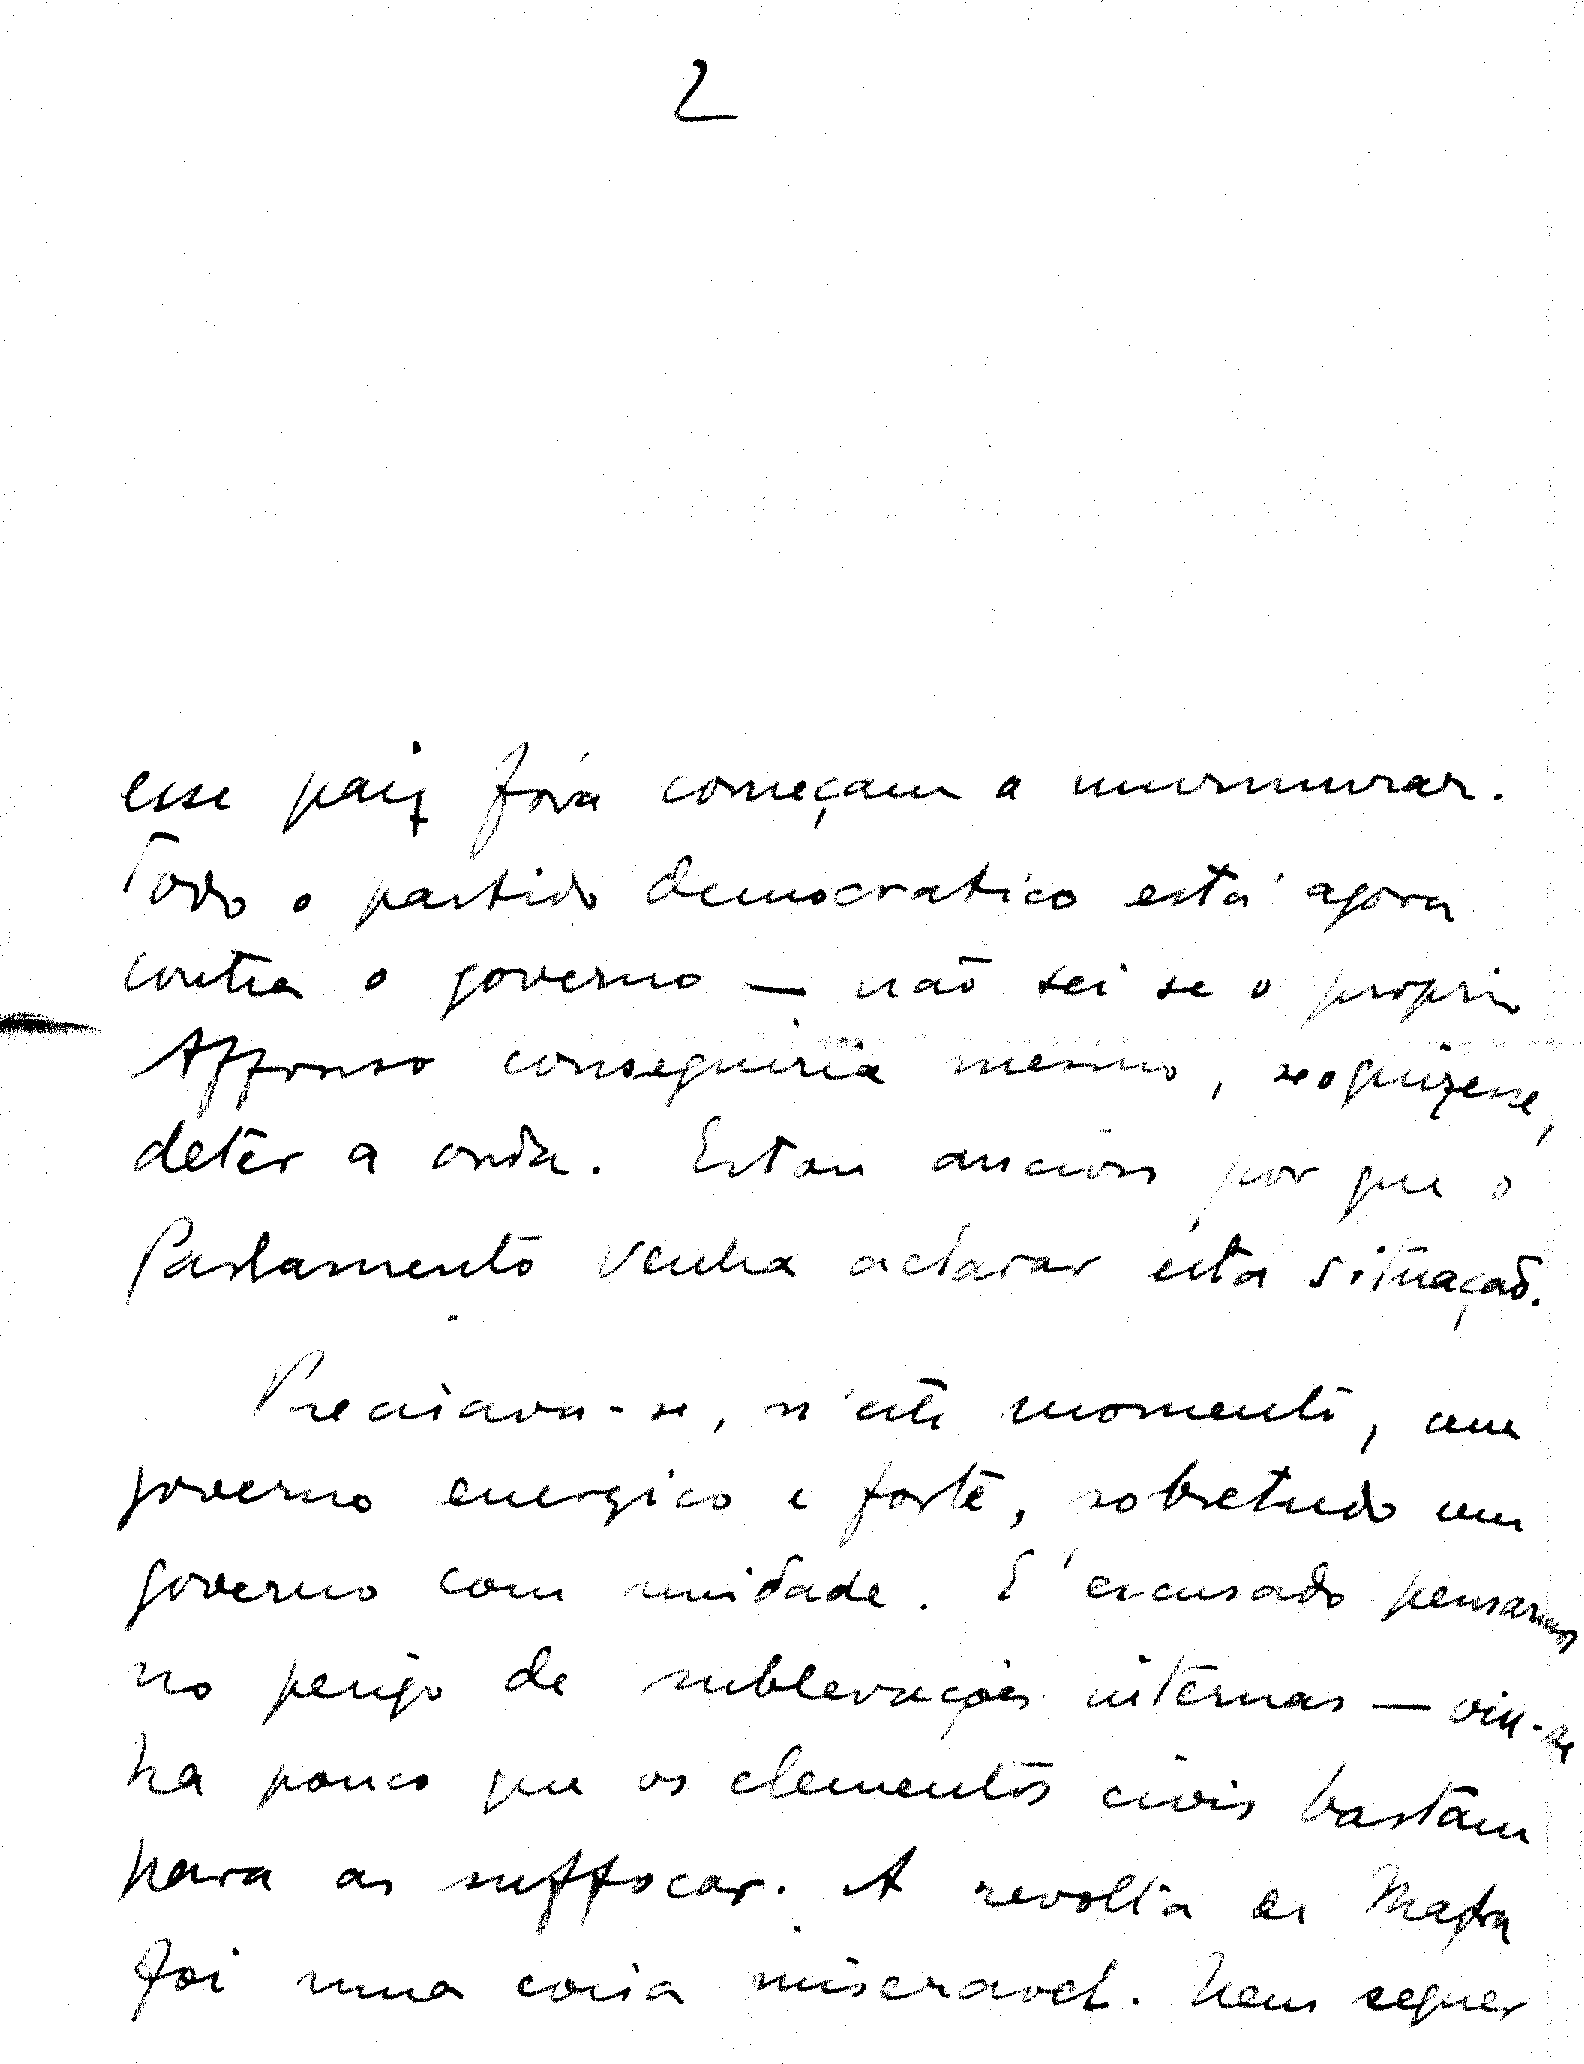 2
esse paiz fóra começam a murmurar.
Todo o partido democratico está agora
contra o governo — não sei se o proprio
Affonso conseguiria mesmo, se o quizesse,
deter a onda. Estou ancioso por que o
Parlamento venha aclarar esta situação.
Precisava-se, n'este momento, um
governo energico e forte, sobretudo um
governo com unidade. É escusado pensarmos
no perigo de sublevações internas — viu-se
ha pouco que os elementos civis bastam
para as suffocar. A revolta de Mafra
foi uma coisa miseravel. Nem sequer